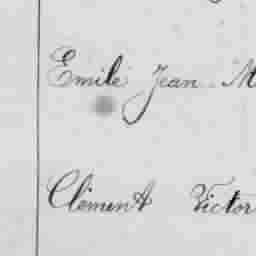 Emile Jean M
Clément Victor